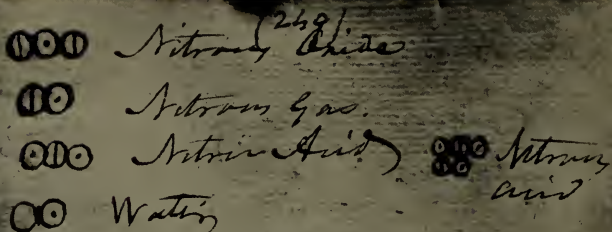 (249)
Nitrous Oxide
Nitrous Gas.
Nitric Acid
Nitrous
acid
Water